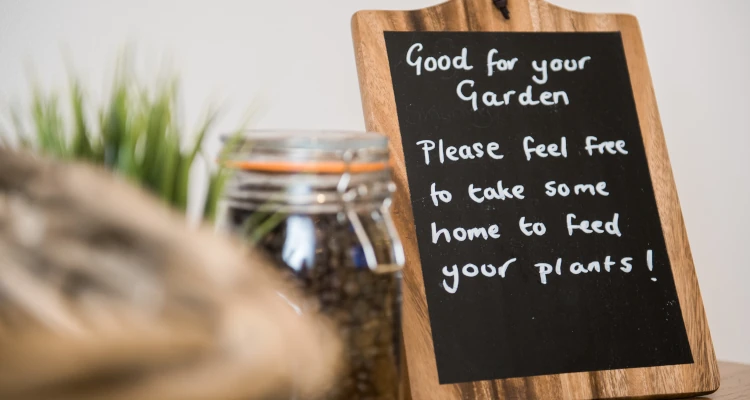 Good for your
Garden
Please feel free
to take some
home to feed
your plants!